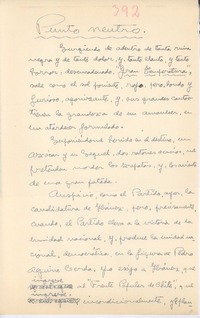 392
Punto neutro.
Surgiendo de adentro de tanta ruina
negra y de tanto dolor, y, tanto llanto, y tanto
horror, desencadenado, Gran Conjuratura,
sale como el sol poniente, rojo, pero, hondo y
furioso, agonizante, y, sus grandes
la grandeza de un amanecer, en
un atardecer formulado.
Emponzoñan herido en el destino, un
y Ezequiel, dos ratones
pretenden morder los zapatos, y, levanto
de una gran patada.
Auspicio, como el Partido, ayer, la
candidatura de Ibáñez, pero, precisamente,
cuando, el Partido clama a la victoria de la
unidad nacional, y, produce la unidad na-
cional, democrática, en la figura de Pedro
Aguirre Cerda, Yo exijo a Ibáñez, que
ingrese al "Frente Popular de Chile", que
ingrese incondicionalmente,